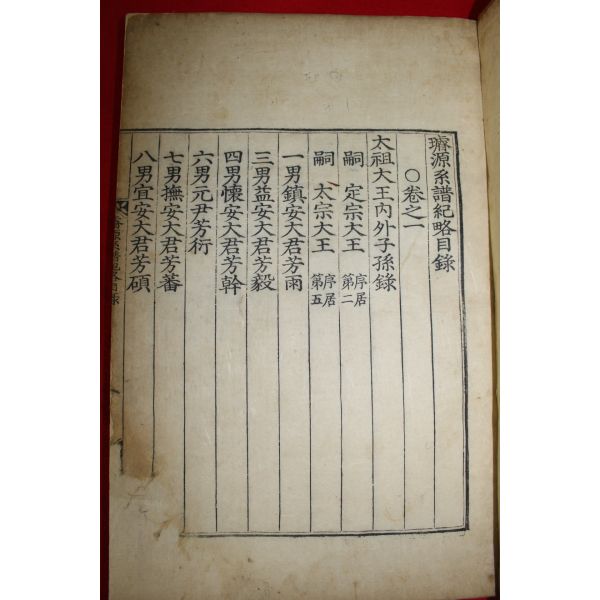 璿源系譜紀略目錄
○卷之一
太祖大王內外子孫錄
嗣 定宗大王 序居第二
嗣 太宗大王 序居第五
一男鎮安大君芳雨
三男益安大君芳毅
四男懷安大君芳幹
六男元尹芳衍
七男撫安大君芳蕃
八男宜安大君芳碩